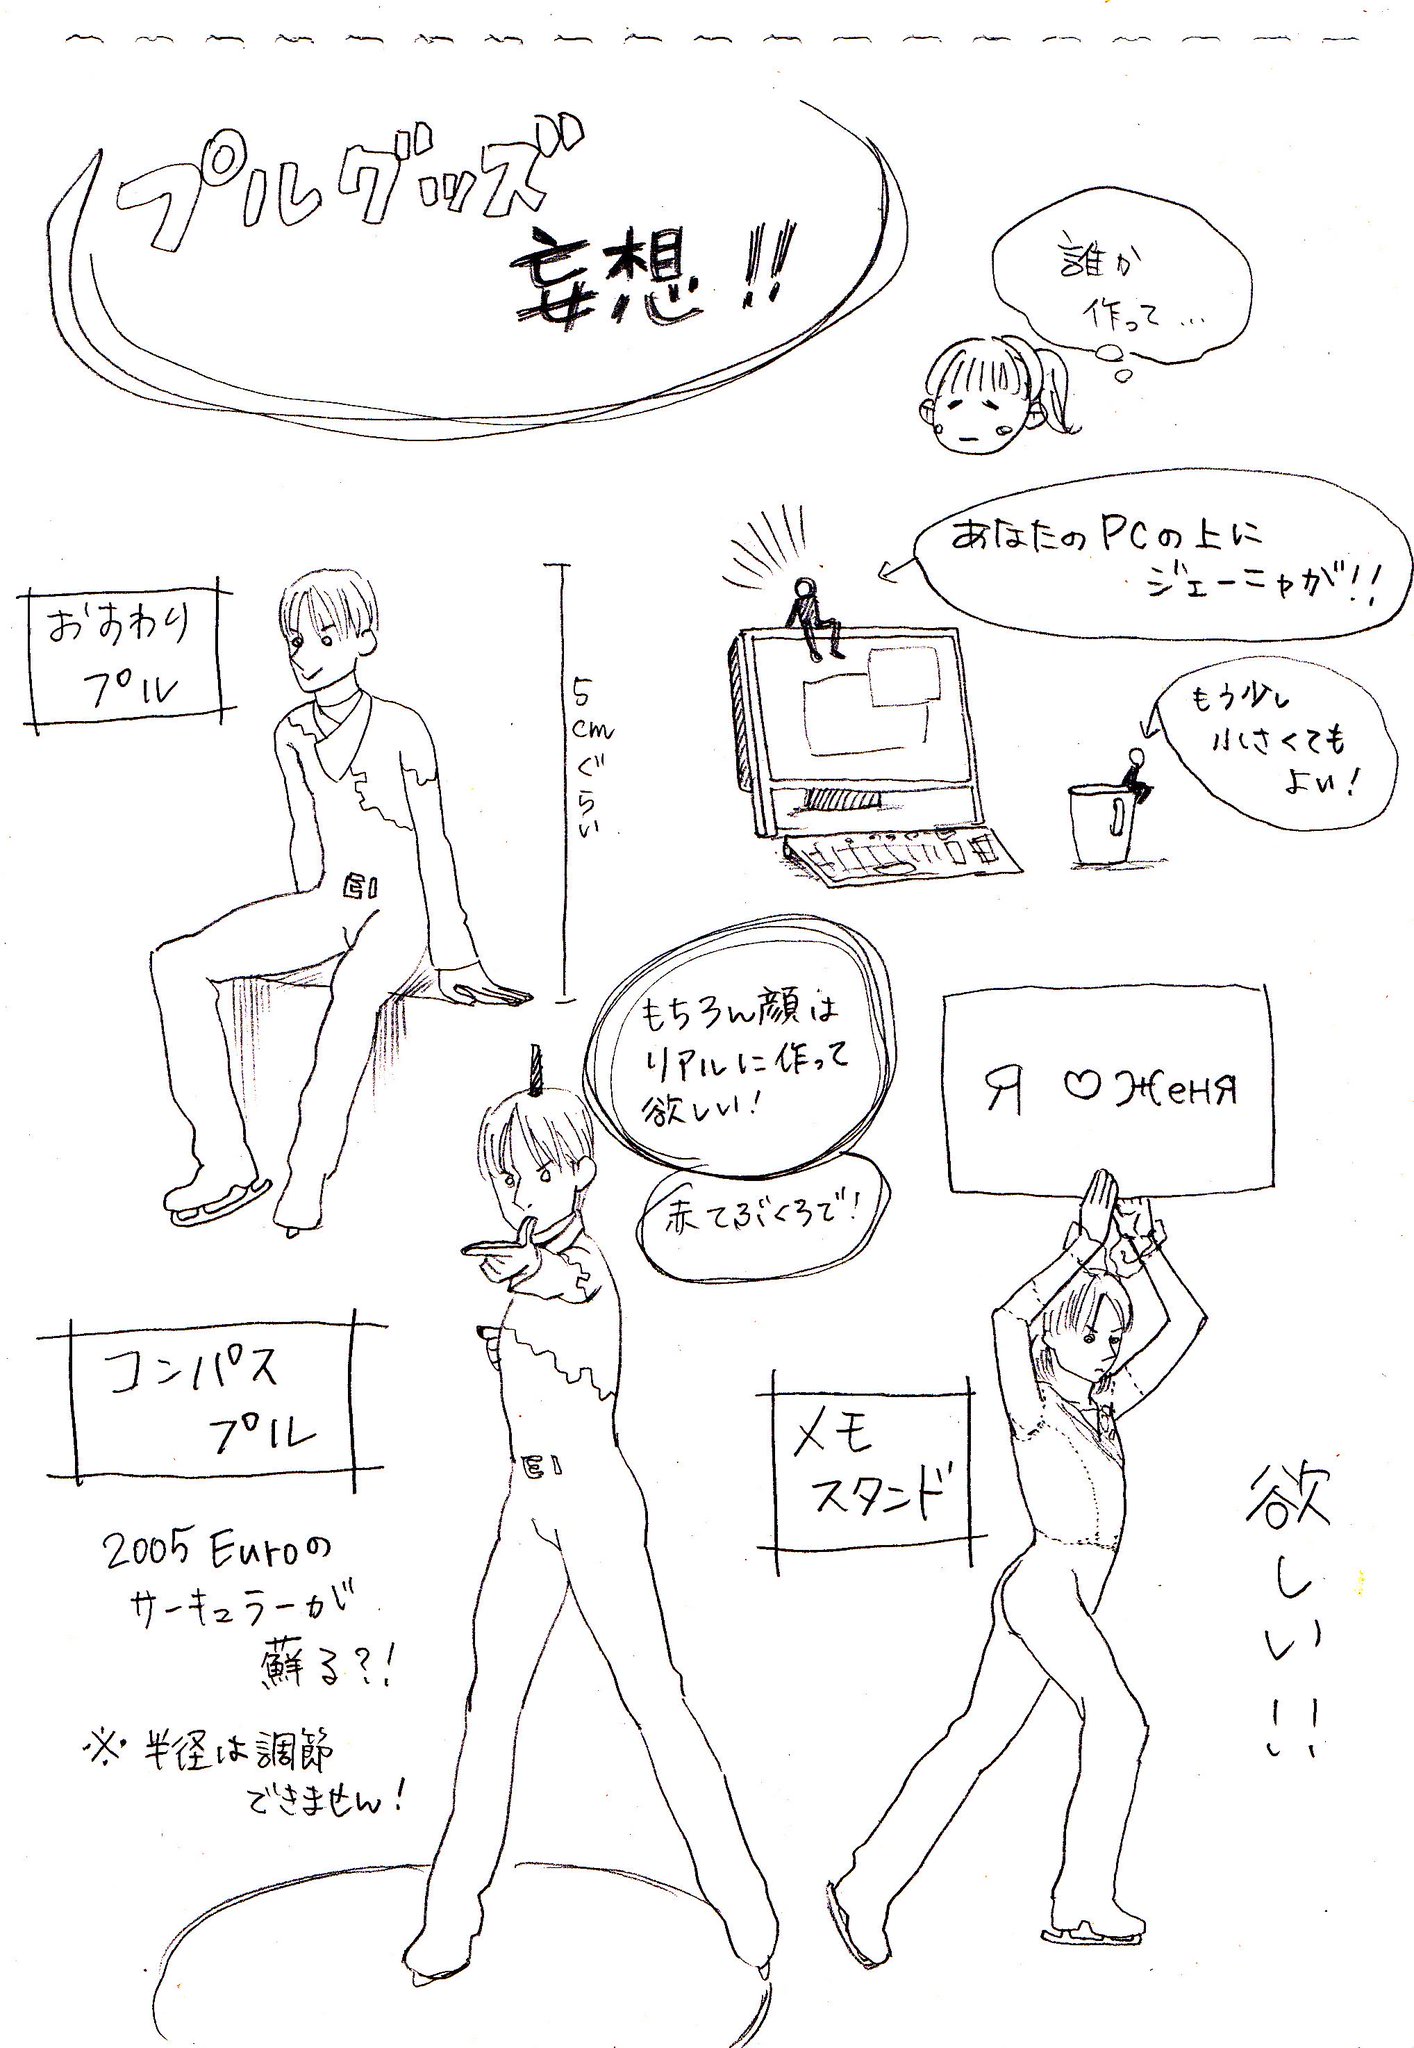 プルグッズ
妄想!!
誰か
作って…
あなたのPCの上に
ジェーニャが!!
もう少し
小さくても
よい!
おすわり
プル
5cmぐらい
もちろん顔は
リアルに作って
欲しい!
赤てぶくろで!
Я ♡ Женя
コンパス
プル
2005 Euroの
サーキュラーが
蘇る?!
※半径は調節
できません!
メモ
スタンド
欲しい!!